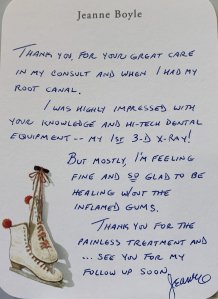 Jeanne Boyle
THANK YOU, FOR YOUR GREAT CARE
IN MY CONSULT AND WHEN I HAD MY
ROOT CANAL.
I WAS HIGHLY IMPRESSED WITH
YOUR KNOWLEDGE AND HI-TECH DENTAL
EQUIPMENT -- MY 1ST 3-D X-RAY!
BUT MOSTLY, I'M FEELING
FINE AND SO GLAD TO BE
HEALING W/OUT THE
INFLAMED GUMS.
THANK YOU FOR THE
PAINLESS TREATMENT AND
... SEE YOU FOR MY
FOLLOW UP SOON.
Jeanne